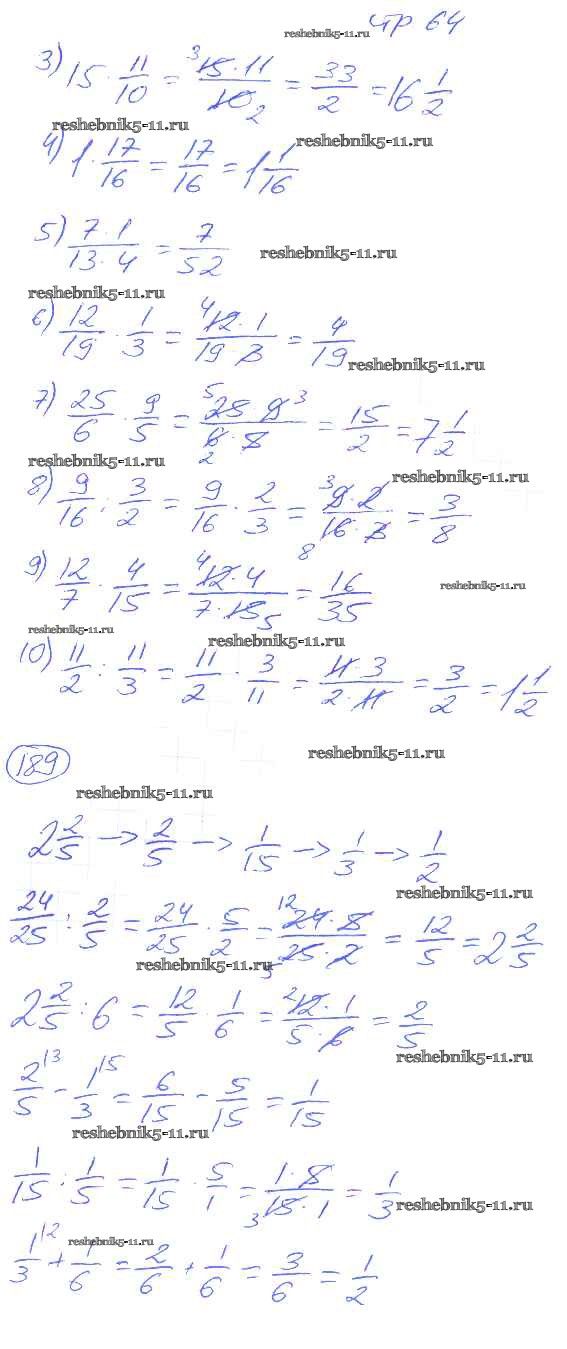 reshebnik5-11.ru стр 64
3) 15 · 11/10 = 15 · 11/10 = 33/2 = 16 1/2
reshebnik5-11.ru reshebnik5-11.ru
4) 1 · 17/16 = 17/16 = 1 1/16
5) 7 · 1/13 · 4 = 7/52 reshebnik5-11.ru
reshebnik5-11.ru
6) 12/19 · 1/3 = 12 · 1/19 · 3 = 4/19
reshebnik5-11.ru
7) 25/6 · 9/5 = 25 · 9/6 · 5 = 15/2 = 7 1/2
reshebnik5-11.ru reshebnik5-11.ru
8) 9/16 : 3/2 = 9/16 · 2/3 = 9 · 2/16 · 3 = 3/8
9) 12/7 · 4/15 = 12 · 4/7 · 15 = 16/35 reshebnik5-11.ru
reshebnik5-11.ru reshebnik5-11.ru
10) 11/2 : 11/3 = 11/2 · 3/11 = 11 · 3/2 · 11 = 3/2 = 1 1/2
189 reshebnik5-11.ru
reshebnik5-11.ru
2 2/5 → 2/5 → 1/15 → 1/3 → 1/2
reshebnik5-11.ru
24/25 : 2/5 = 24/25 · 5/2 = 24 · 5/25 · 2 = 12/5 = 2 2/5
reshebnik5-11.ru
2 2/5 : 6 = 12/5 · 1/6 = 12 · 1/5 · 6 = 2/5
reshebnik5-11.ru
2/5 - 1/3 = 6/15 - 5/15 = 1/15
reshebnik5-11.ru
1/15 : 1/5 = 1/15 · 5/1 = 1 · 5/15 · 1 = 1/3
reshebnik5-11.ru
reshebnik5-11.ru
1/3 + 1/6 = 2/6 + 1/6 = 3/6 = 1/2